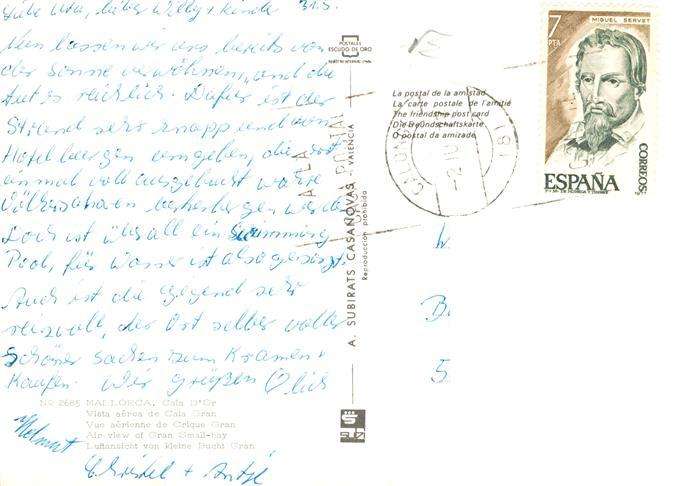 Liebe Uta, lieber Willy + Kinder 31.5.
Nun lassen wir uns bereits von
der Sonne verwöhnen, und die
tut es reichlich. Dafür ist der
Strand sehr knapp und von
Hotelburgen umgeben, die erst
einmal voll ausgebucht wahre
Völkerscharen beherbergen werden.
Doch ist überall ein Swimming
Pool, für Wasser ist also gesorgt.
Auch ist die Gegend sehr
reizvoll, der Ort selber voller
schöner Sachen zum Kramen +
Kaufen. Wir grüßen Euch
Helmut
Christel + Antje
No 2685 MALLORCA, Cala D'Or
Vista aérea de Cala Gran
Vue aérienne de Crique Gran
Air view of Gran Small-bay
Luftansicht von kleine Bucht Gran
POSTALES
ESCUDO DE ORO
A. SUBIRATS CASANOVAS - VALENCIA
Reproducción prohibida
La postal de la amistad
La carte postale de l'amitié
The friendship post card
Die Freundschaftskarte
O postal da amizade
B.
5
MIGUEL SERVET
7
PTA
CORREOS
ESPAÑA